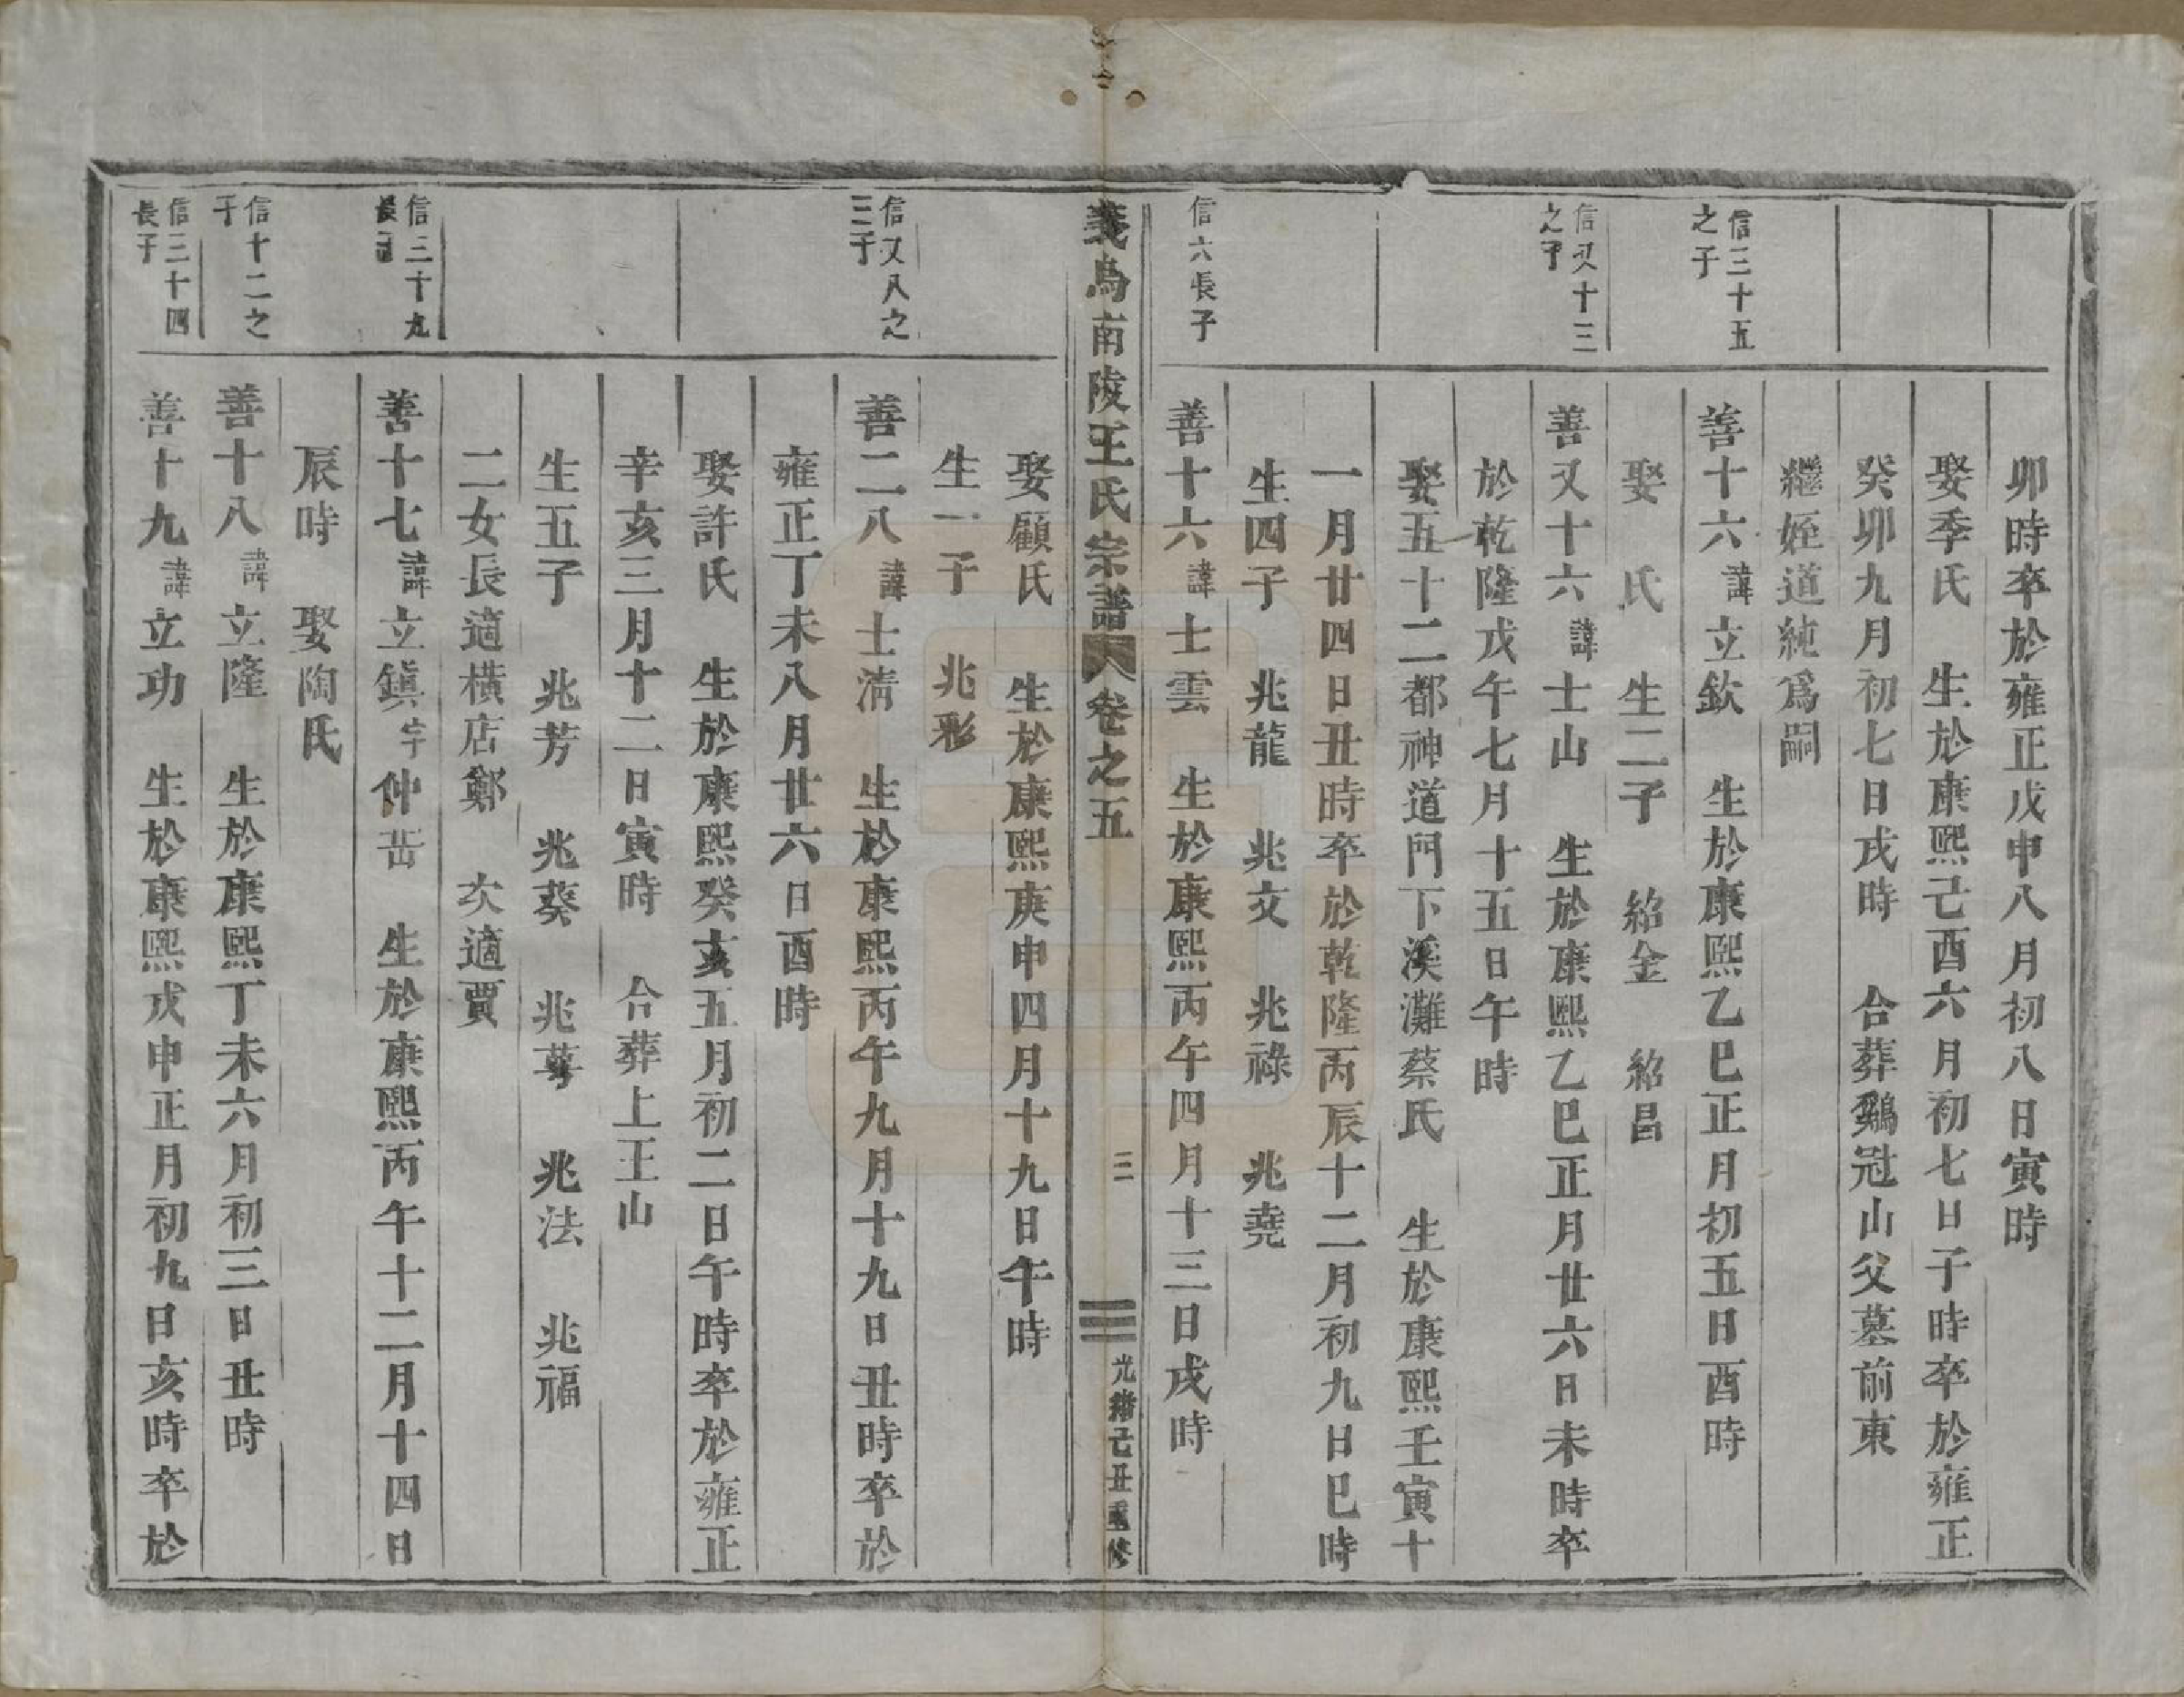 卯時卒於雍正戊申八月初八日寅時
娶季氏　生於康熙己酉六月初七日子時卒於雍正
癸卯九月初七日戌時　合葬鷄冠山父墓前東
繼姪道純爲嗣
信三十五之子
善十六諱立欽　生於康熙乙巳正月初五日酉時
娶　氏　生二子　紹金　紹昌
信又十三之子
善又十六諱士山　生於康熙乙巳正月廿六日未時卒
於乾隆戊午七月十五日午時
娶五十二都神道門下溪灘蔡氏　生於康熙壬寅十
一月廿四日丑時卒於乾隆丙辰十二月初九日巳時
生四子　兆龍　兆交　兆祿　兆堯
信六長子
善十六諱士雲　生於康熙丙午四月十三日戌時
義烏南陵王氏宗譜　卷之五　三　光緒己丑重修
娶顧氏　生於康熙庚申四月十九日午時
生一子　兆彩
信又八之三子
善二八諱士淸　生於康熙丙午九月十九日丑時卒於
雍正丁未八月廿六日酉時
娶許氏　生於康熙癸亥五月初二日午時卒於雍正
辛亥三月十二日寅時　合葬上王山
生五子　兆芳　兆葵　兆蕚　兆法　兆福
二女長適橫店鄭　次適賈
信三十九長子
善十七諱立鎭字仲岳　生於康熙丙午十二月十四日
辰時　娶陶氏
信十二之子
善十八諱立隆　生於康熙丁未六月初三日丑時
信三十四長子
善十九諱立功　生於康熙戊申正月初九日亥時卒於